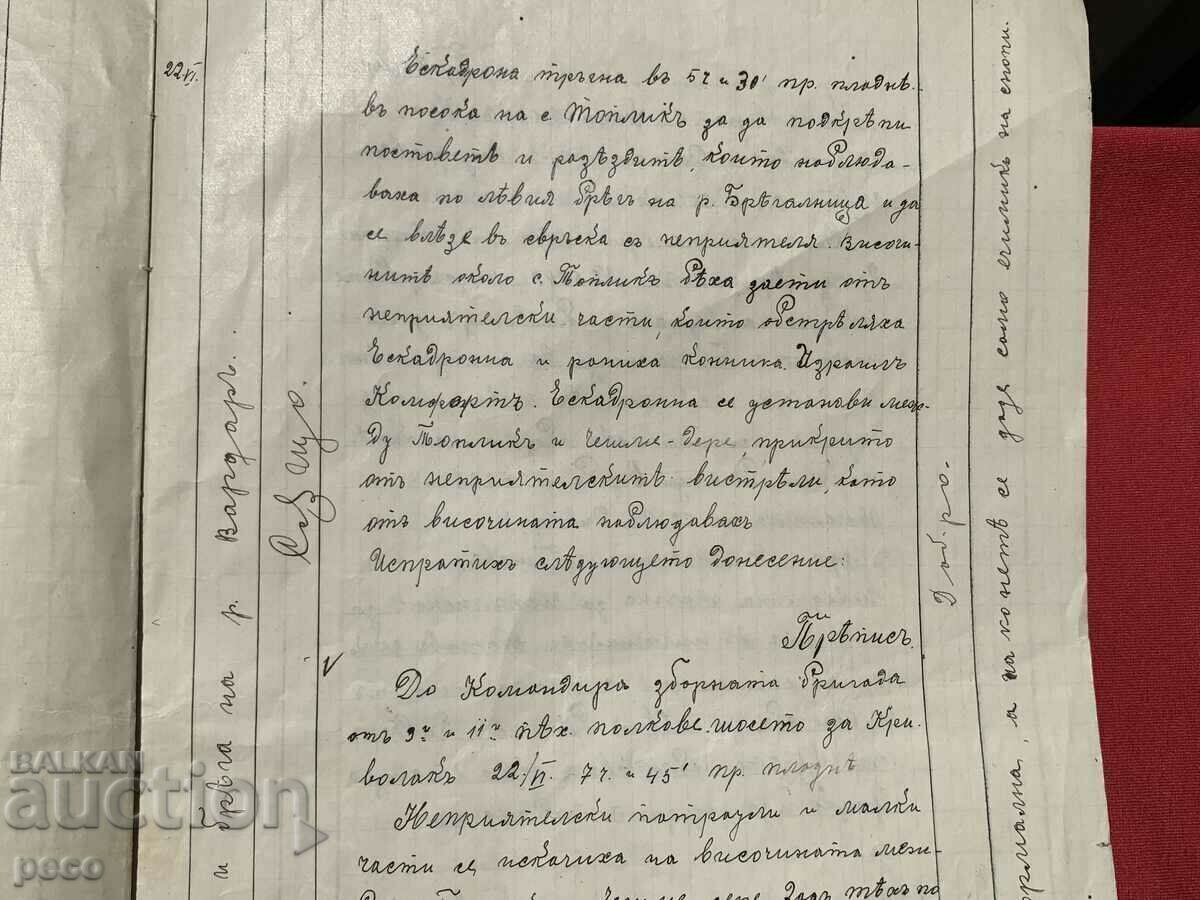 22/VI.
и брѣга на р. Вардаръ.
Ескадрона тръгна въ 5 ч и 30' пр. пладнѣ.
въ посока на с Топликъ за да подкрѣпи
постоветѣ и разѣздитѣ, които наблюда-
ваха по лѣвия брѣгъ на р. Брѣгалница и да
се влѣзе въ свръска съ неприятеля. Височи-
нитѣ около с. Топликъ бѣха заети отъ
неприятелски части, които обстрѣляха
Ескадронна и раниха конника Израилъ
Комфортъ. Ескадронна се установи меж-
ду Топликъ и Чешме-дере, прикрито
отъ неприятелскитѣ вистрѣли, като
отъ височината наблюдавахъ
Испратихъ слѣдующето донесение:
Прѣписъ.
До Командира зборната бригада
отъ 3й и 11й пѣх. полкове. шосето за Кри-
волакъ 22/VI 7 ч. и 45' пр. пладнѣ
Неприятелски патраули и малки
части се искачиха на височината меж-
Добро.
а на конетѣ се даде само ечимикъ на снопи.
BALKAN
auction
peco